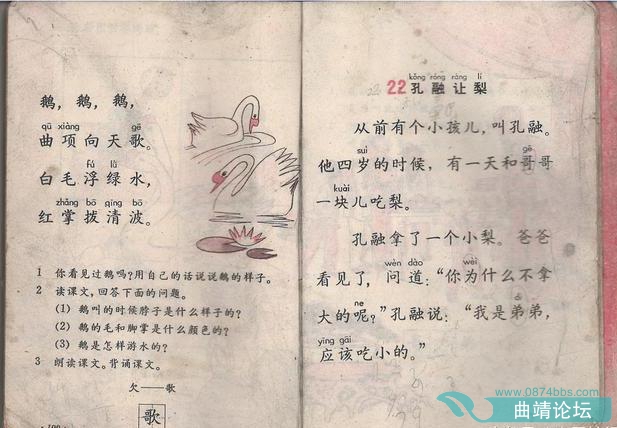 鹅，鹅，鹅，
qū xiàng gē
曲项向天歌。
fú lǜ
白毛浮绿水，
zhǎng bō qīng bō
红掌拨清波。
1 你看见过鹅吗？用自己的话说说鹅的样子。
2 读课文，回答下面的问题。
(1) 鹅叫的时候脖子是什么样子的？
(2) 鹅的毛和脚掌是什么颜色的？
(3) 鹅是怎样游水的？
3 朗读课文。背诵课文。
欠——歌
歌
kǒng róng ràng lí
22 孔融让梨
从前有个小孩儿，叫孔融。
suì gē
他四岁的时候，有一天和哥哥
kuài
一块儿吃梨。
孔融拿了一个小梨。爸爸
wèn dào wèi
看见了，问道：“你为什么不拿
ne
大的呢？”孔融说：“我是弟弟，
yīng gāi
应该吃小的。”
www.0874bbs.com
曲靖论坛